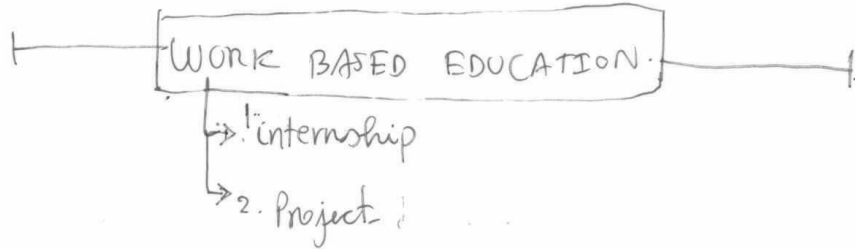 WORK BASED EDUCATION.
1. internship
2. Project